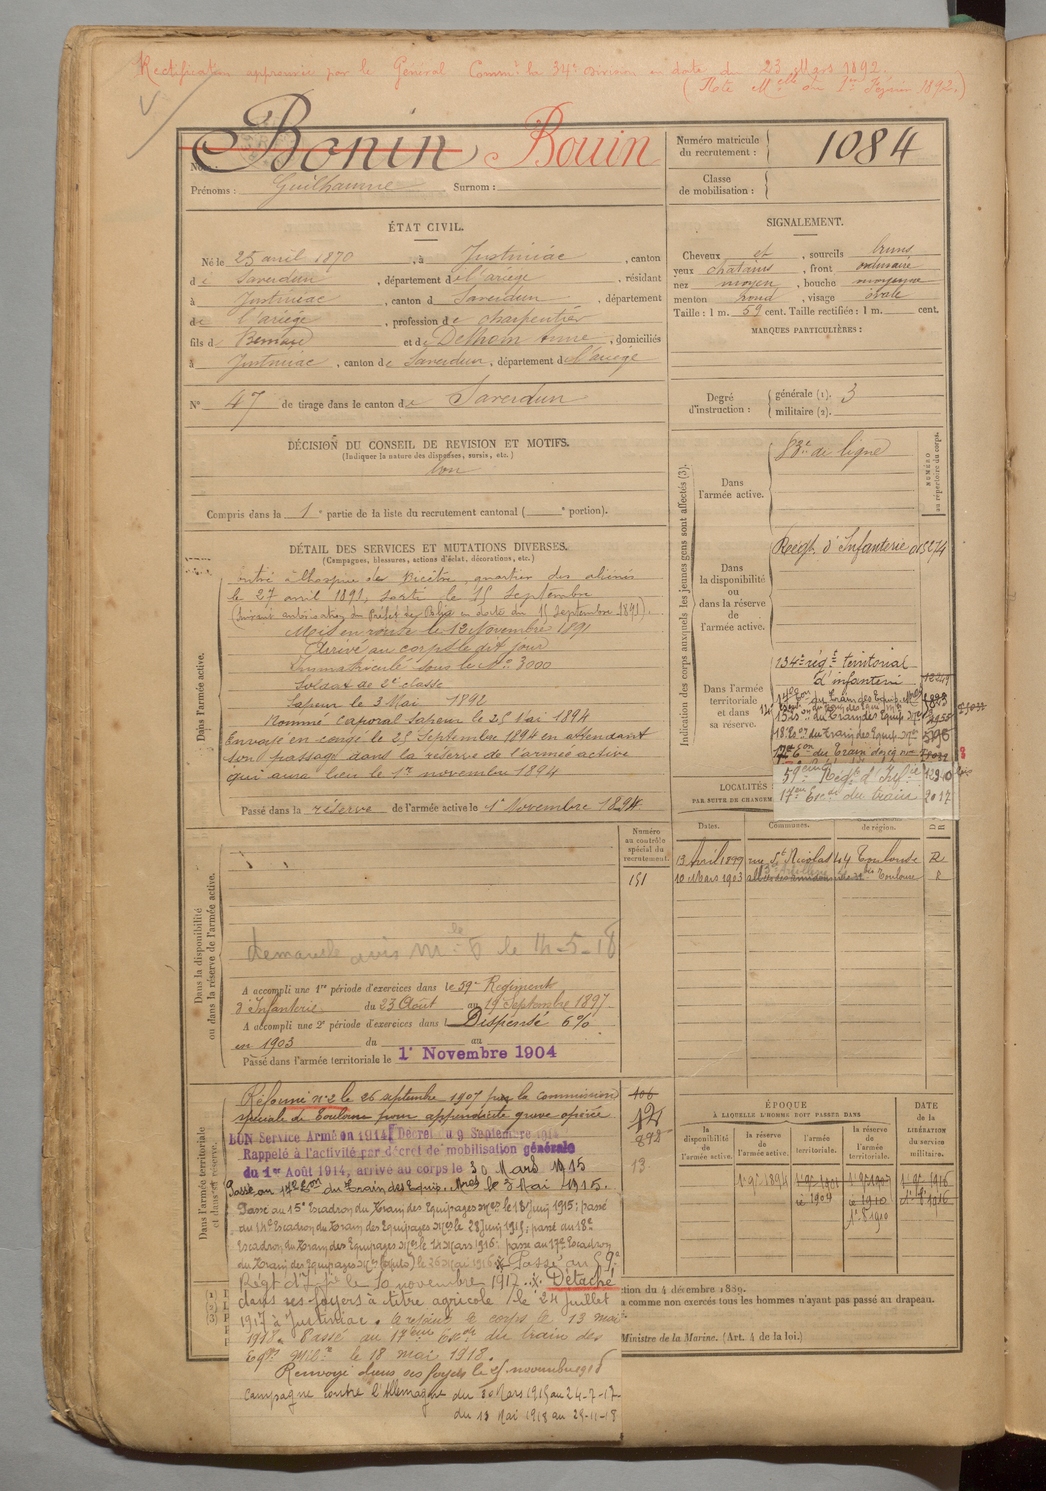 Rectification approuvée par le Général Commt la 34e Division en date du 23 Mars 1892.
(Note Melle du 1er Février 1892.)
Bonin Bouin
Prénoms : Guilhaume Surnom :
Numéro matricule du recrutement : 1084
Classe de mobilisation :
ÉTAT CIVIL.
Né le 25 avril 1870, à Justiniac, canton
de Saverdun, département de l'ariège, résidant
à Justiniac, canton de Saverdun, département
de l'ariège, profession de charpentier
fils de Bernard et de Delhom Anne, domiciliés
à Justiniac, canton de Saverdun, département de l'ariège
N° 47 de tirage dans le canton de Saverdun
SIGNALEMENT.
Cheveux et, sourcils bruns
yeux chatains, front ordinaire
nez moyen, bouche moyenne
menton rond, visage ovale
Taille : 1 m. 59 cent. Taille rectifiée : 1 m. cent.
MARQUES PARTICULIÈRES :
Degré d'instruction : générale (1). 3
militaire (2).
DÉCISION DU CONSEIL DE REVISION ET MOTIFS.
(Indiquer la nature des dispenses, sursis, etc.)
bon
Compris dans la 1e partie de la liste du recrutement cantonal ( e portion).
DÉTAIL DES SERVICES ET MUTATIONS DIVERSES.
(Campagnes, blessures, actions d'éclat, décorations, etc.)
Dans l'armée active.
entré à l'hospice de Bicêtre, quartier des aliénés
le 27 avril 1891, sorti le 15 Septembre
(Suivant autorisation du Préfet de Police en date du 15 Septembre 1891).
Mis en route le 12 Novembre 1891
Arrivé au corps le dit jour
Immatriculé sous le No 3000
Soldat de 2e classe
Sapeur le 3 Mai 1892
Nommé Caporal Sapeur le 25 Mai 1894
Envoyé en congé le 25 Septembre 1894 en attendant
son passage dans la réserve de l'armée active
qui aura lieu le 1er novembre 1894
Passé dans la réserve de l'armée active le 1er Novembre 1894
Indication des corps auxquels les jeunes gens sont affectés (3).
NUMÉRO au répertoire du corps.
Dans l'armée active. 83e de ligne
Dans la disponibilité ou dans la réserve de l'armée active.
Régt d'Infanterie
Dans l'armée territoriale et dans sa réserve.
134e régt territorial
d'infanterie
59eme Régt d'Infie
17eme Eron du train 2017
LOCALITÉS
PAR SUITE DE CHANGEM
Dates. Communes. de région.
13 Avril 1899 rue St Nicolas 44 Toulouse R
10 Mars 1903 Toulouse
Dans la disponibilité ou dans la réserve de l'armée active.
Numéro au contrôle spécial du recrutement.
151
demande avis le 14-5-18
A accompli une 1re période d'exercices dans le 59e Régiment
d'Infanterie du 23 Août au 19 Septembre 1897
A accompli une 2e période d'exercices dans l Dispensé 6%
en 1903 du au
Passé dans l'armée territoriale le 1er Novembre 1904
Dans l'armée territoriale et dans sa réserve.
Réformé n° 2 le 26 septembre 1907 par la commission
spéciale de Toulouse pour appendicite grave opérée
BON Service Armé en 1914 Décret du 9 Septembre 1914
Rappelé à l'activité par décret de mobilisation générale
du 1er Août 1914, arrivé au corps le 30 Mars 1915
Passé au 17e Eon du Train des Equip. Mres le 3 Mai 1915.
Passé au 15e Escadron du Train des Equipages Mres le 18 Juin 1915; passé
au 14e Escadron du Train des Equipages Mres le 28 Juin 1915; passé au 18e
Escadron du Train des Equipages Mres le 14 Mars 1916; passé au 17e Escadron
du Train des Equipages Mres le 26 Mai 1916 Passé au 59e
Régt d'Infie le 10 novembre 1917. Détaché
dans ses foyers à titre agricole le 24 Juillet
1917 à Justiniac. a rejoint le corps le 13 mai
1918. Passé au 17eme Eron du train des
Eqps Milres le 18 mai 1918.
Renvoyé dans ses foyers le novembre 1918
campagne contre l'Allemagne du 30 Mars 1915 au 24-7-17
du 13 Mai 1918 au 29-11-18
106
121
892
13
ÉPOQUE
À LAQUELLE L'HOMME DOIT PASSER DANS
la disponibilité de l'armée active. la réserve de l'armée active. l'armée territoriale. la réserve de l'armée territoriale.
DATE de la LIBÉRATION du service militaire.
1er 9bre 1894
ce 1904
ce 1910
ction du 4 décembre 1889.
a comme non exercés tous les hommes n'ayant pas passé au drapeau.
Ministre de la Marine. (Art. 4 de la loi.)